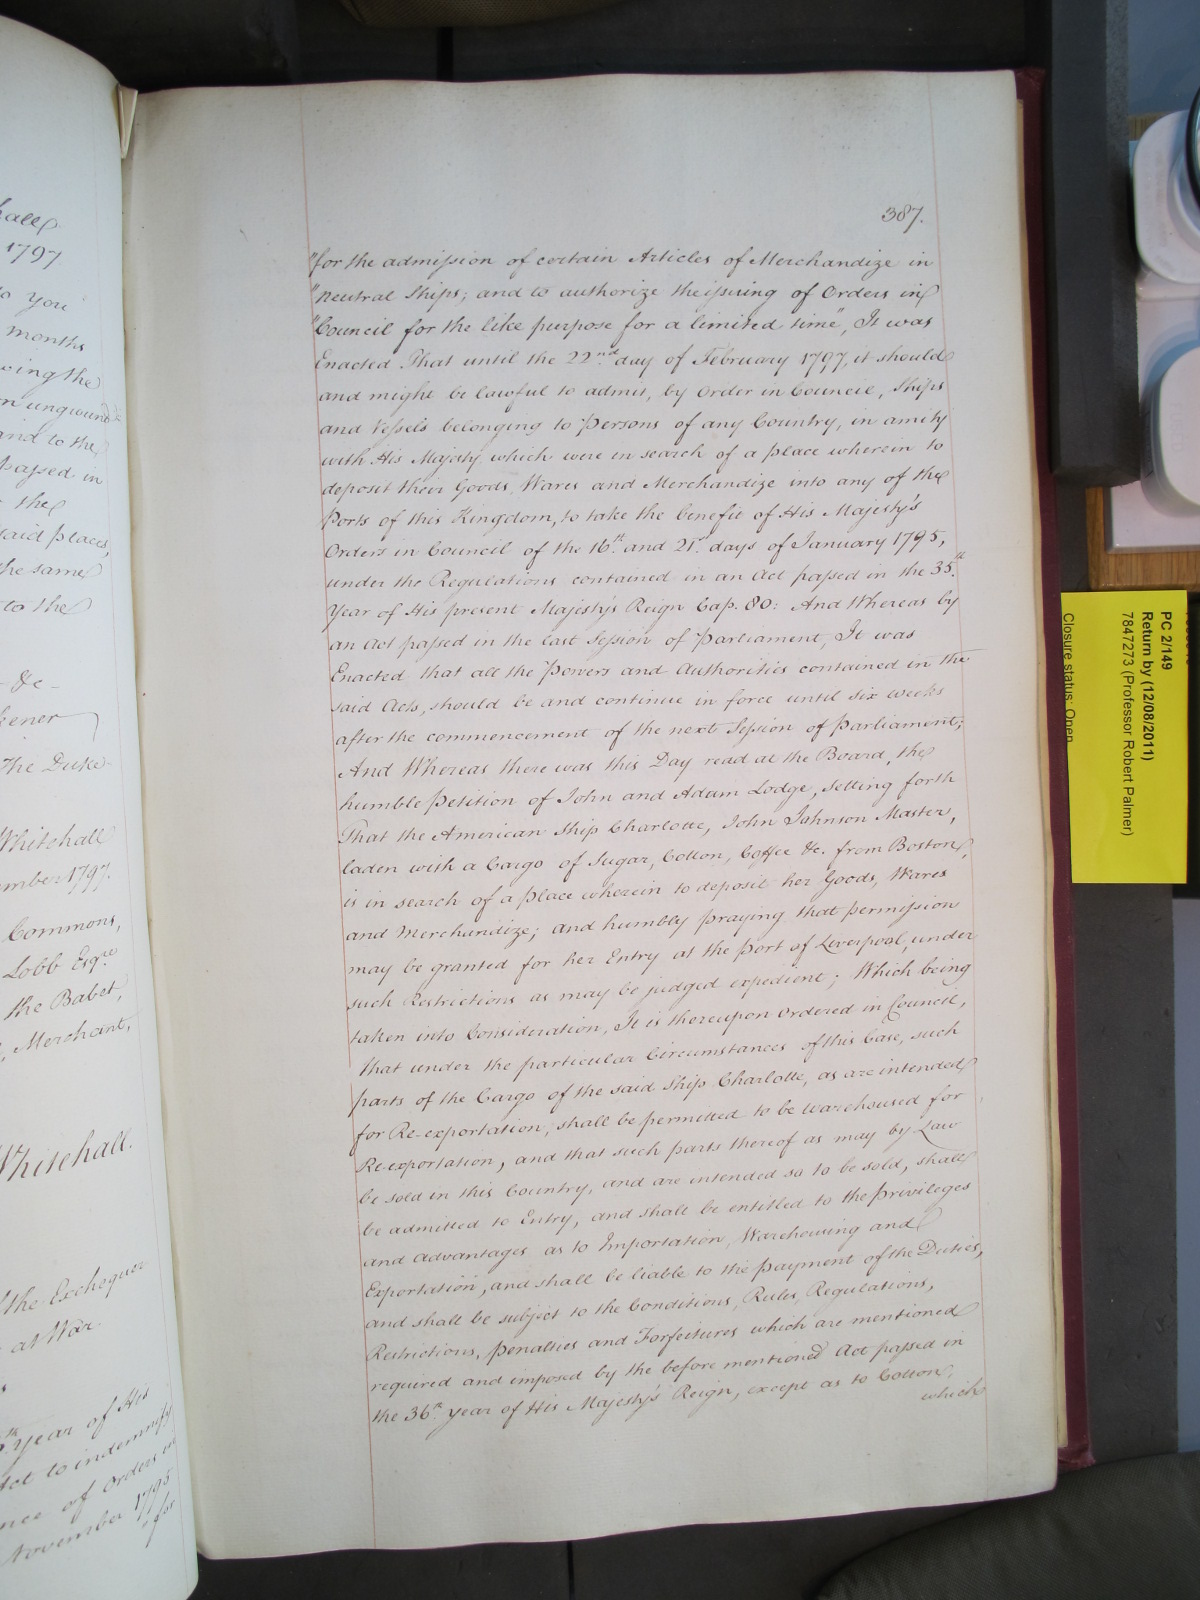 hall
1797
to you
months
wing the
on ungwound
and to the
passed in
the
said places,
the same
to the
- &c -
The Duke
Whitehall
ember 1797.
Commons,
Lobb Esqre.
the Babet,
Merchant,
Whitehall.
the Exchequer
at War.
Year of His
Act to indemnify
of Orders in
November 1795
"for
387.
"for the admission of certain Articles of Merchandize in
"Neutral Ships; and to authorize the issuing of Orders in
"Council for the like purpose for a limited time", It was
Enacted That until the 22nd. day of February 1797, it should
and might be lawful to admit, by Order in Council, Ships
and Vessels belonging to Persons of any Country, in amity
with His Majesty which were in search of a place wherein to
deposit their Goods, Wares and Merchandize into any of the
Ports of this Kingdom, to take the benefit of His Majesty's
Orders in Council of the 16th. and 21st. days of January 1795,
under the Regulations contained in an Act passed in the 35th.
Year of His present Majesty's Reign Cap. 80: And Whereas by
an Act passed in the last Session of Parliament, It was
Enacted that all the Powers and Authorities contained in the
said Acts, should be and continue in force until six weeks
after the commencement of the next Session of Parliament;
And Whereas there was this Day read at the Board, the
humble Petition of John and Adam Lodge, setting forth
That the American Ship Charlotte, John Johnson Master,
laden with a Cargo of Sugar, Cotton, Coffee &c. from Boston,
is in search of a place wherein to deposit her Goods, Wares
and Merchandize; and humbly praying that permission
may be granted for her Entry at the Port of Liverpool, under
such Restrictions as may be judged expedient; Which being
taken into Consideration, It is thereupon Ordered in Council,
that under the particular Circumstances of this Case, such
parts of the Cargo of the said Ship Charlotte, as are intended
for Re-exportation, shall be permitted to be warehoused for
Re-exportation, and that such parts thereof as may by Law
be sold in this Country, and are intended so to be sold, shall
be admitted to Entry, and shall be entitled to the Privileges
and advantages as to Importation, Warehousing and
Exportation, and shall be liable to the Payment of the Duties,
and shall be subject to the Conditions, Rules, Regulations,
Restrictions, Penalties and Forfeitures which are mentioned
required and imposed by the before mentioned Act passed in
the 36th. year of His Majesty's Reign, except as to Cotton,
which
PC 2/149
Return by (12/08/2011)
7847273 (Professor Robert Palmer)
Closure status: Open